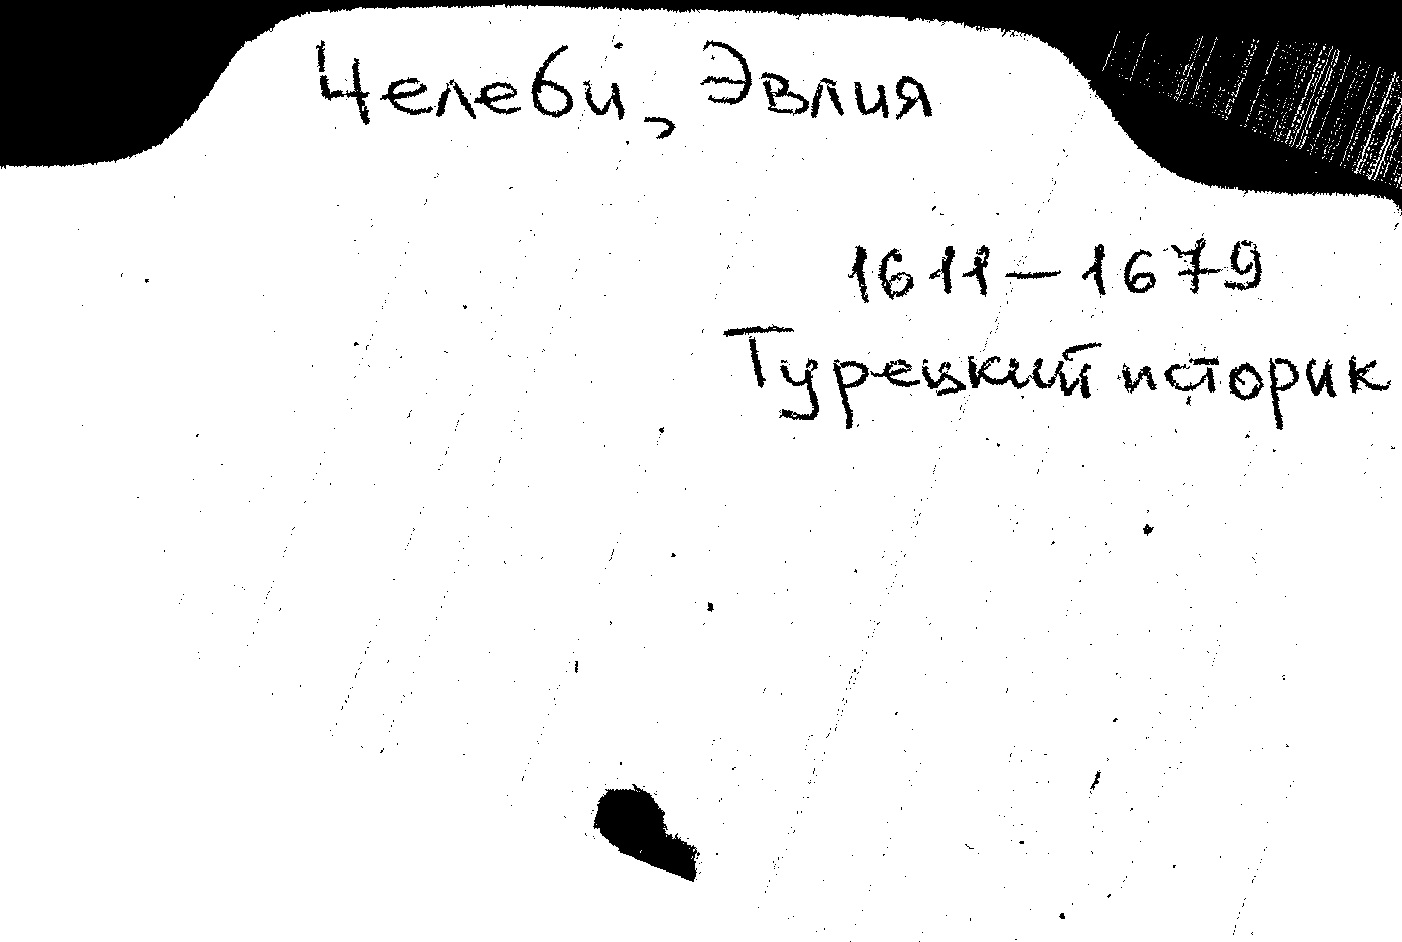 Челеби, Эвлия
1611 – 1679
Турецкий историк